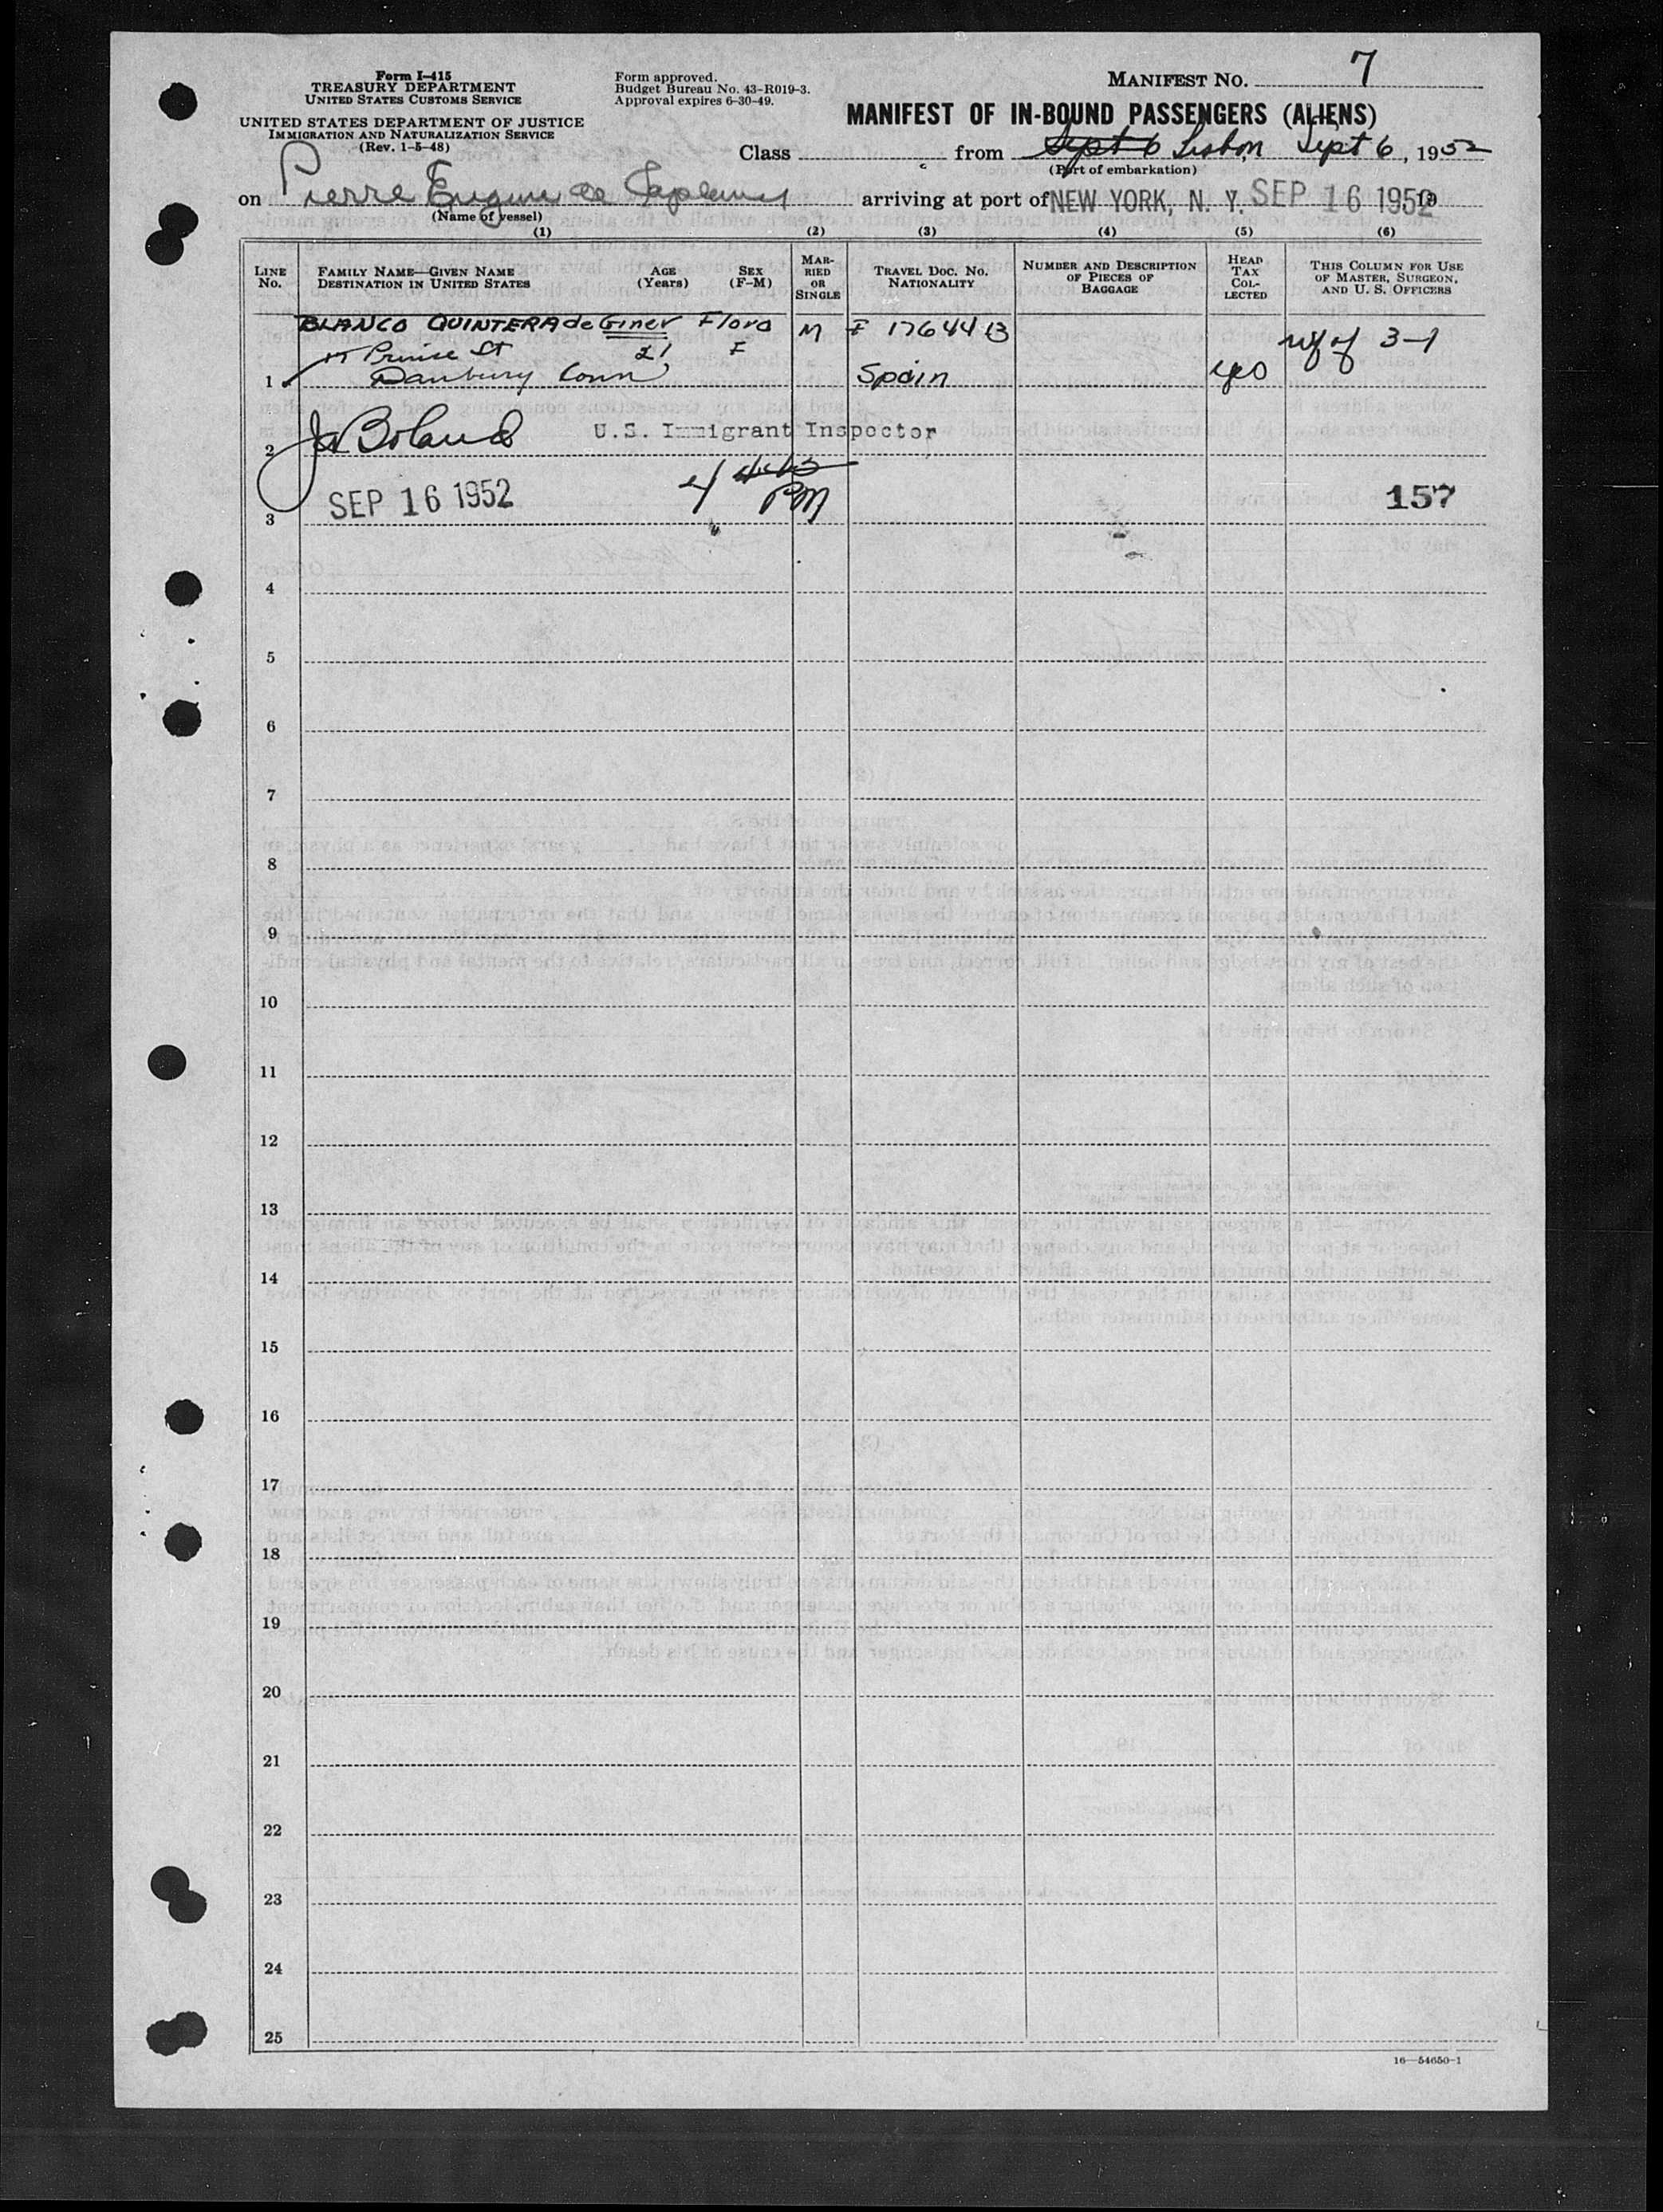 Form I-415
TREASURY DEPARTMENT
UNITED STATES CUSTOMS SERVICE
UNITED STATES DEPARTMENT OF JUSTICE
IMMIGRATION AND NATURALIZATION SERVICE
(Rev. 1-5-48)
Form approved.
Budget Bureau No. 43-R019-3.
Approval expires 6-30-49.
MANIFEST NO. 7
MANIFEST OF IN-BOUND PASSENGERS (ALIENS)
Class from Sept 6 Lisbon Sept 6, 1952
(Port of embarkation)
on Pierre de arriving at port of NEW YORK, N. Y. SEP 16 1952 19
(Name of vessel)
(1) (2) (3) (4) (5) (6)
LINE No.
FAMILY NAME—GIVEN NAME
DESTINATION IN UNITED STATES
AGE (Years)
SEX (F-M)
MARRIED OR SINGLE
TRAVEL DOC. NO.
NATIONALITY
NUMBER AND DESCRIPTION OF PIECES OF BAGGAGE
HEAD TAX COLLECTED
THIS COLUMN FOR USE OF MASTER, SURGEON, AND U. S. OFFICERS
BLANCO QUINTERA de Giner Flora M I 1764413
St 21 F 3-1
1 Danbury Conn Spain yes
2 Boland U.S. Immigrant Inspector
3 SEP 16 1952 PM 157
4
5
6
7
8
9
10
11
12
13
14
15
16
17
18
19
20
21
22
23
24
25
16—54650-1